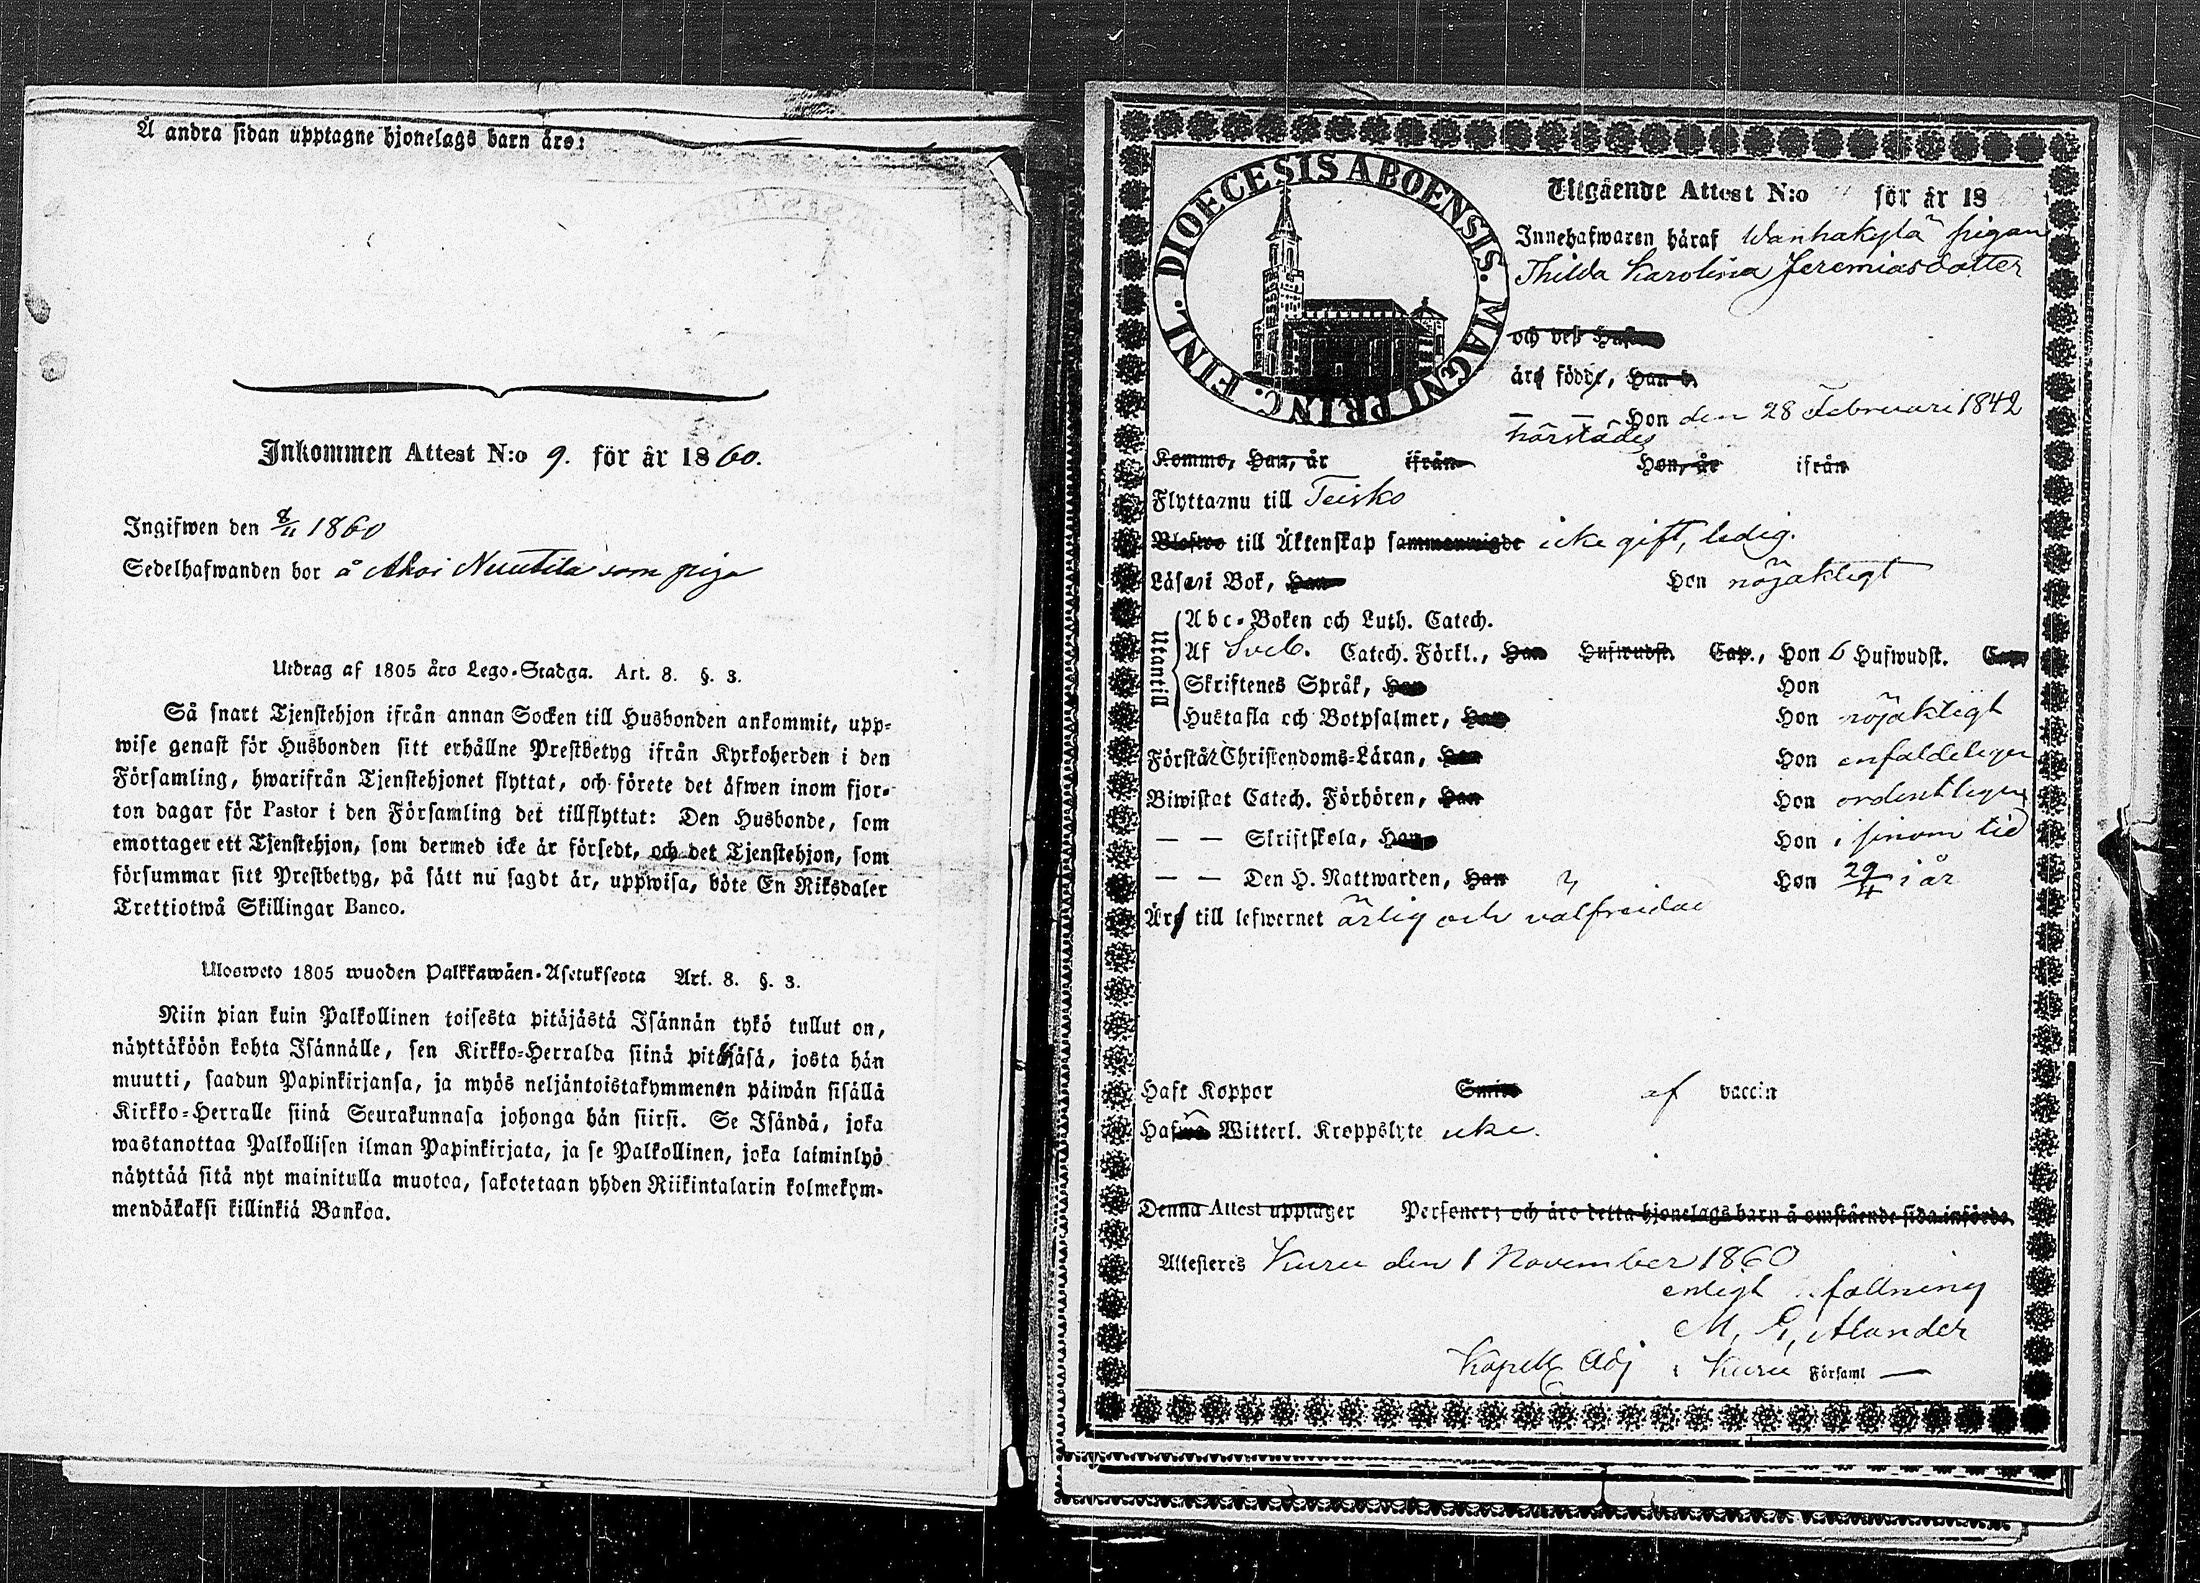 Å andra sidan upptagne hjonelags barn äro:
Inkommen Attest N:o 9. för år 1860.
Ingifwen den 8/11 1860
Sedelhafwanden bor å Ahoi Nuutila som piga
Utdrag af 1805 års Lego-Stadga. Art. 8. §. 3.
Så snart Tjenstehjon ifrån annan Socken till Husbonden ankommit, upp-
wise genast för Husbonden sitt erhållne Prestbetyg ifrån Kyrkoherden i den
Församling, hwarifrån Tjenstehjonet flyttat, och förete det äfwen inom fjor-
ton dagar för Pastor i den Församling det tillflyttat: Den Husbonde, som
emottager ett Tjenstehjon, som dermed icke är försedt, och det Tjenstehjon, som
försummar sitt Prestbetyg, på sätt nu sagdt är, uppwisa, böte En Riksdaler
Trettiotwå Skillingar Banco.
Ulosweto 1805 wuoden Palkkawäen-Asetuksesta Art. 8. §. 3.
Niin pian kuin Palkollinen toisesta pitäjästä Isännän tykö tullut on,
näyttäköön kohta Isännälle, sen Kirkko-Herralda siinä pitäjäsä, josta hän
muutti, saadun Papinkirjansa, ja myös neljäntoistakymmenen päiwän sisällä
Kirkko-Herralle siinä Seurakunnasa johonga hän siirsi. Se Isändä, joka
wastanottaa Palkollisen ilman Papinkirjata, ja se Palkollinen, joka laiminlyö
näyttää sitä nyt mainitulla muotoa, sakotetaan yhden Riikintalarin kolmekym-
mendäkaksi killinkiä Bankoa.
DIOECESIS ABOENSIS. MAGNI PRINC. FINL.
Utgående Attest N:o för år 18
Innehafwaren häraf Wanhakylä pigan
Thilda Karolina Jeremiasdotter
och deß Hustru
äro född, Han d.
— — Hon den 28 Februari 1842
härstädes
Komme, Han, år ifrån Hon, år ifrån
Flyttar nu till Teisko
till Äktenskap sammanwigde icke gift, ledig.
Läser i Bok, Han Hon nöjaktigt
Utantill
Abc-Boken och Luth. Catech.
Af Sveb. Catech. Förkl., Han Hufwudst. Cap., Hon 6 Hufwudst. Cap.
Skriftenes Språk, Han Hon
Hustafla och Botpsalmer, Han Hon nöjaktigt
Förstår Christendoms-Läran, Han Hon enfaldeligen
Biwistat Catech. Förhören, Han Hon ordentligen
— — Skriftskola, Han Hon i sinom tid
— — Den H. Nattwarden, Han Hon 29/4 i år
Äro till lefwernet ärlig och välfrejdad
Haft Koppor af vaccin
Hafwa Witterl. Kroppslyte icke.
Denna Attest upptager Personer; och äro detta hjonelags barn å omstående sida införde.
Attesteres Kuru den 1 November 1860
enligt fallning
M. G. Alander
Kapell. Adj i Kuru Församl —